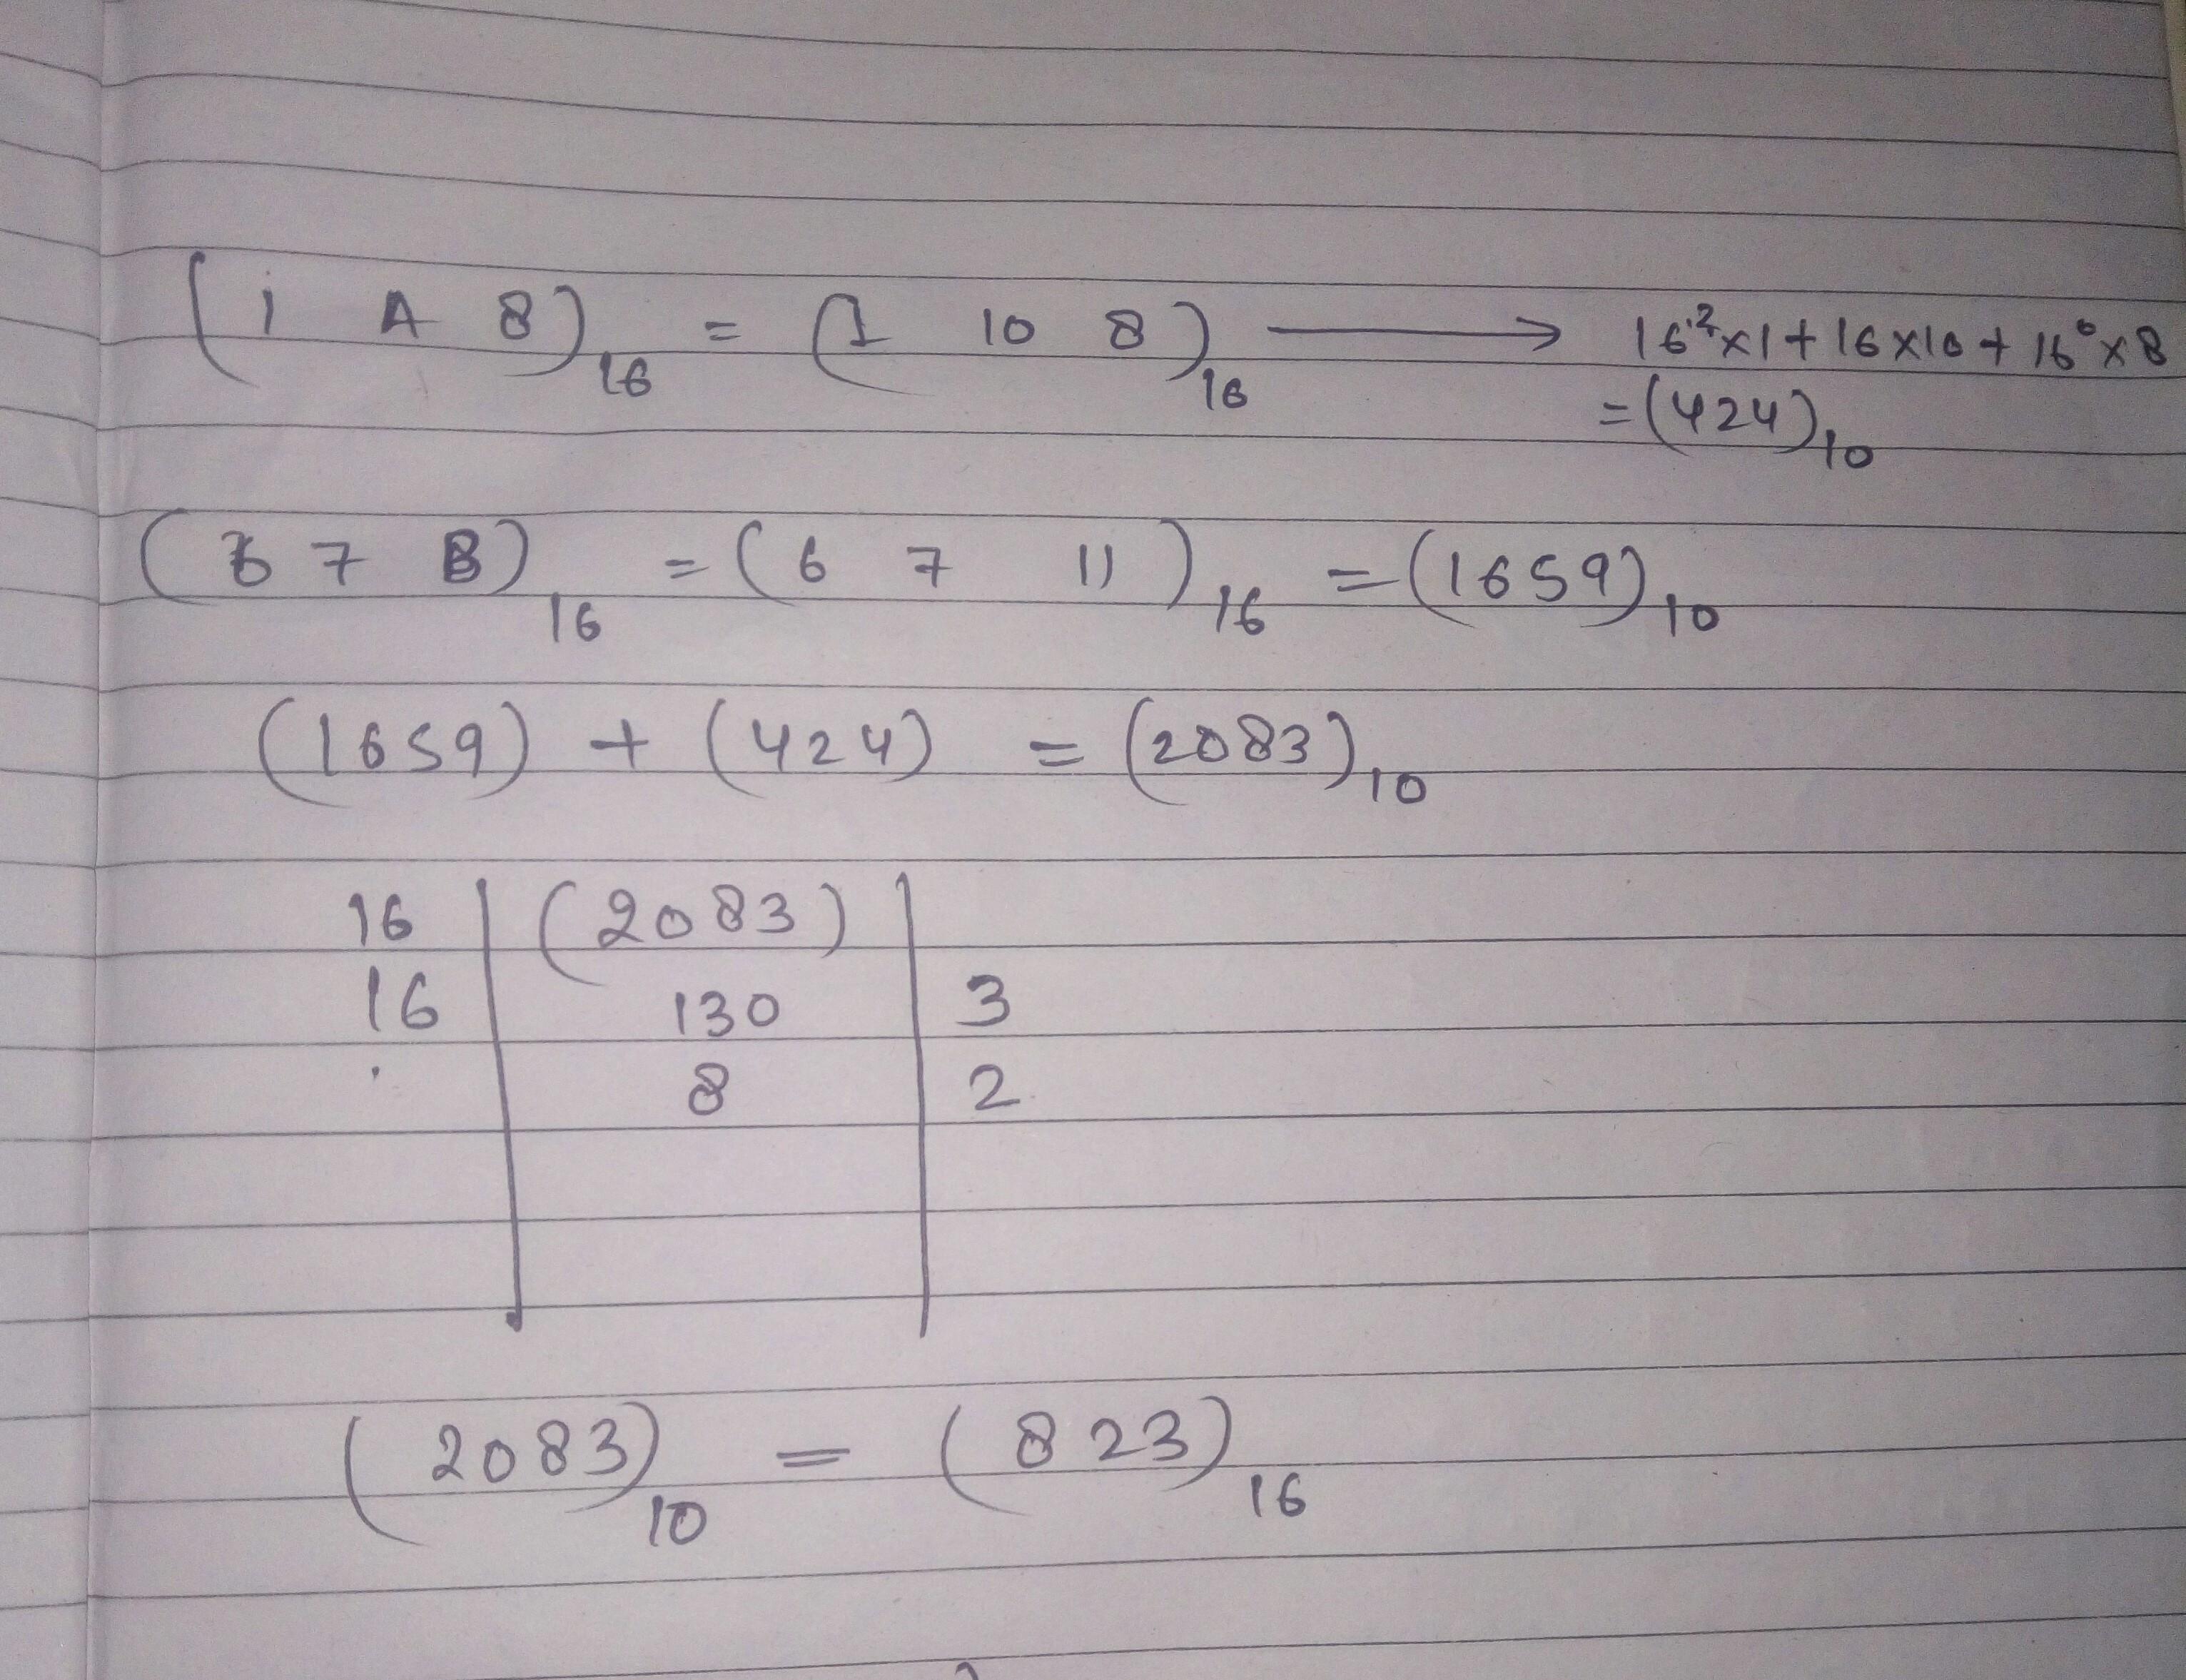 (1 A 8)₁₆ = (1 10 8)₁₆ ⟶ 16²×1+16×10+16⁰×8
=(424)₁₀
(6 7 B)₁₆ =(6 7 11)₁₆ =(1659)₁₀
(1659) + (424) = (2083)₁₀
16 | (2083) |
16 | 130 | 3
8 | 2
(2083)₁₀ = (823)₁₆